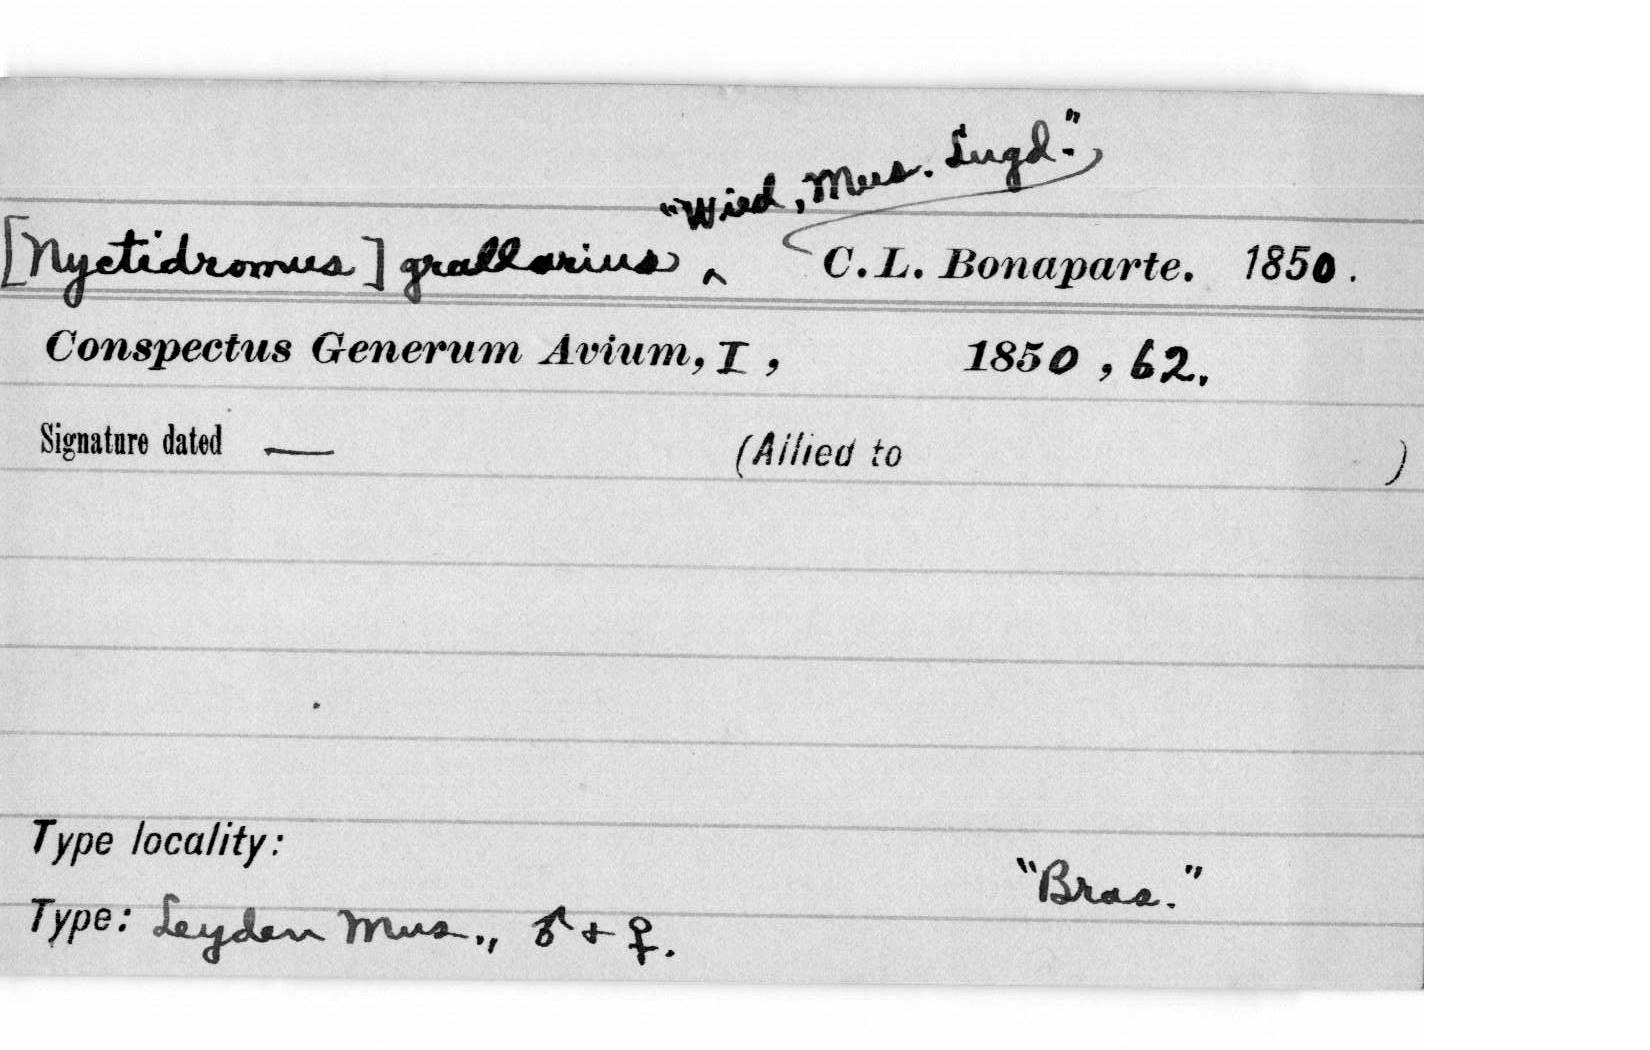 "Wied, Mus. Lugd.",
[Nyctidromus] grallarius ‸ C. L. Bonaparte. 1850.
Conspectus Generum Avium, I, 1850, 62.
Signature dated — (Allied to )
Type locality:
"Bras."
Type: Leyden Mus., ♂ + ♀.